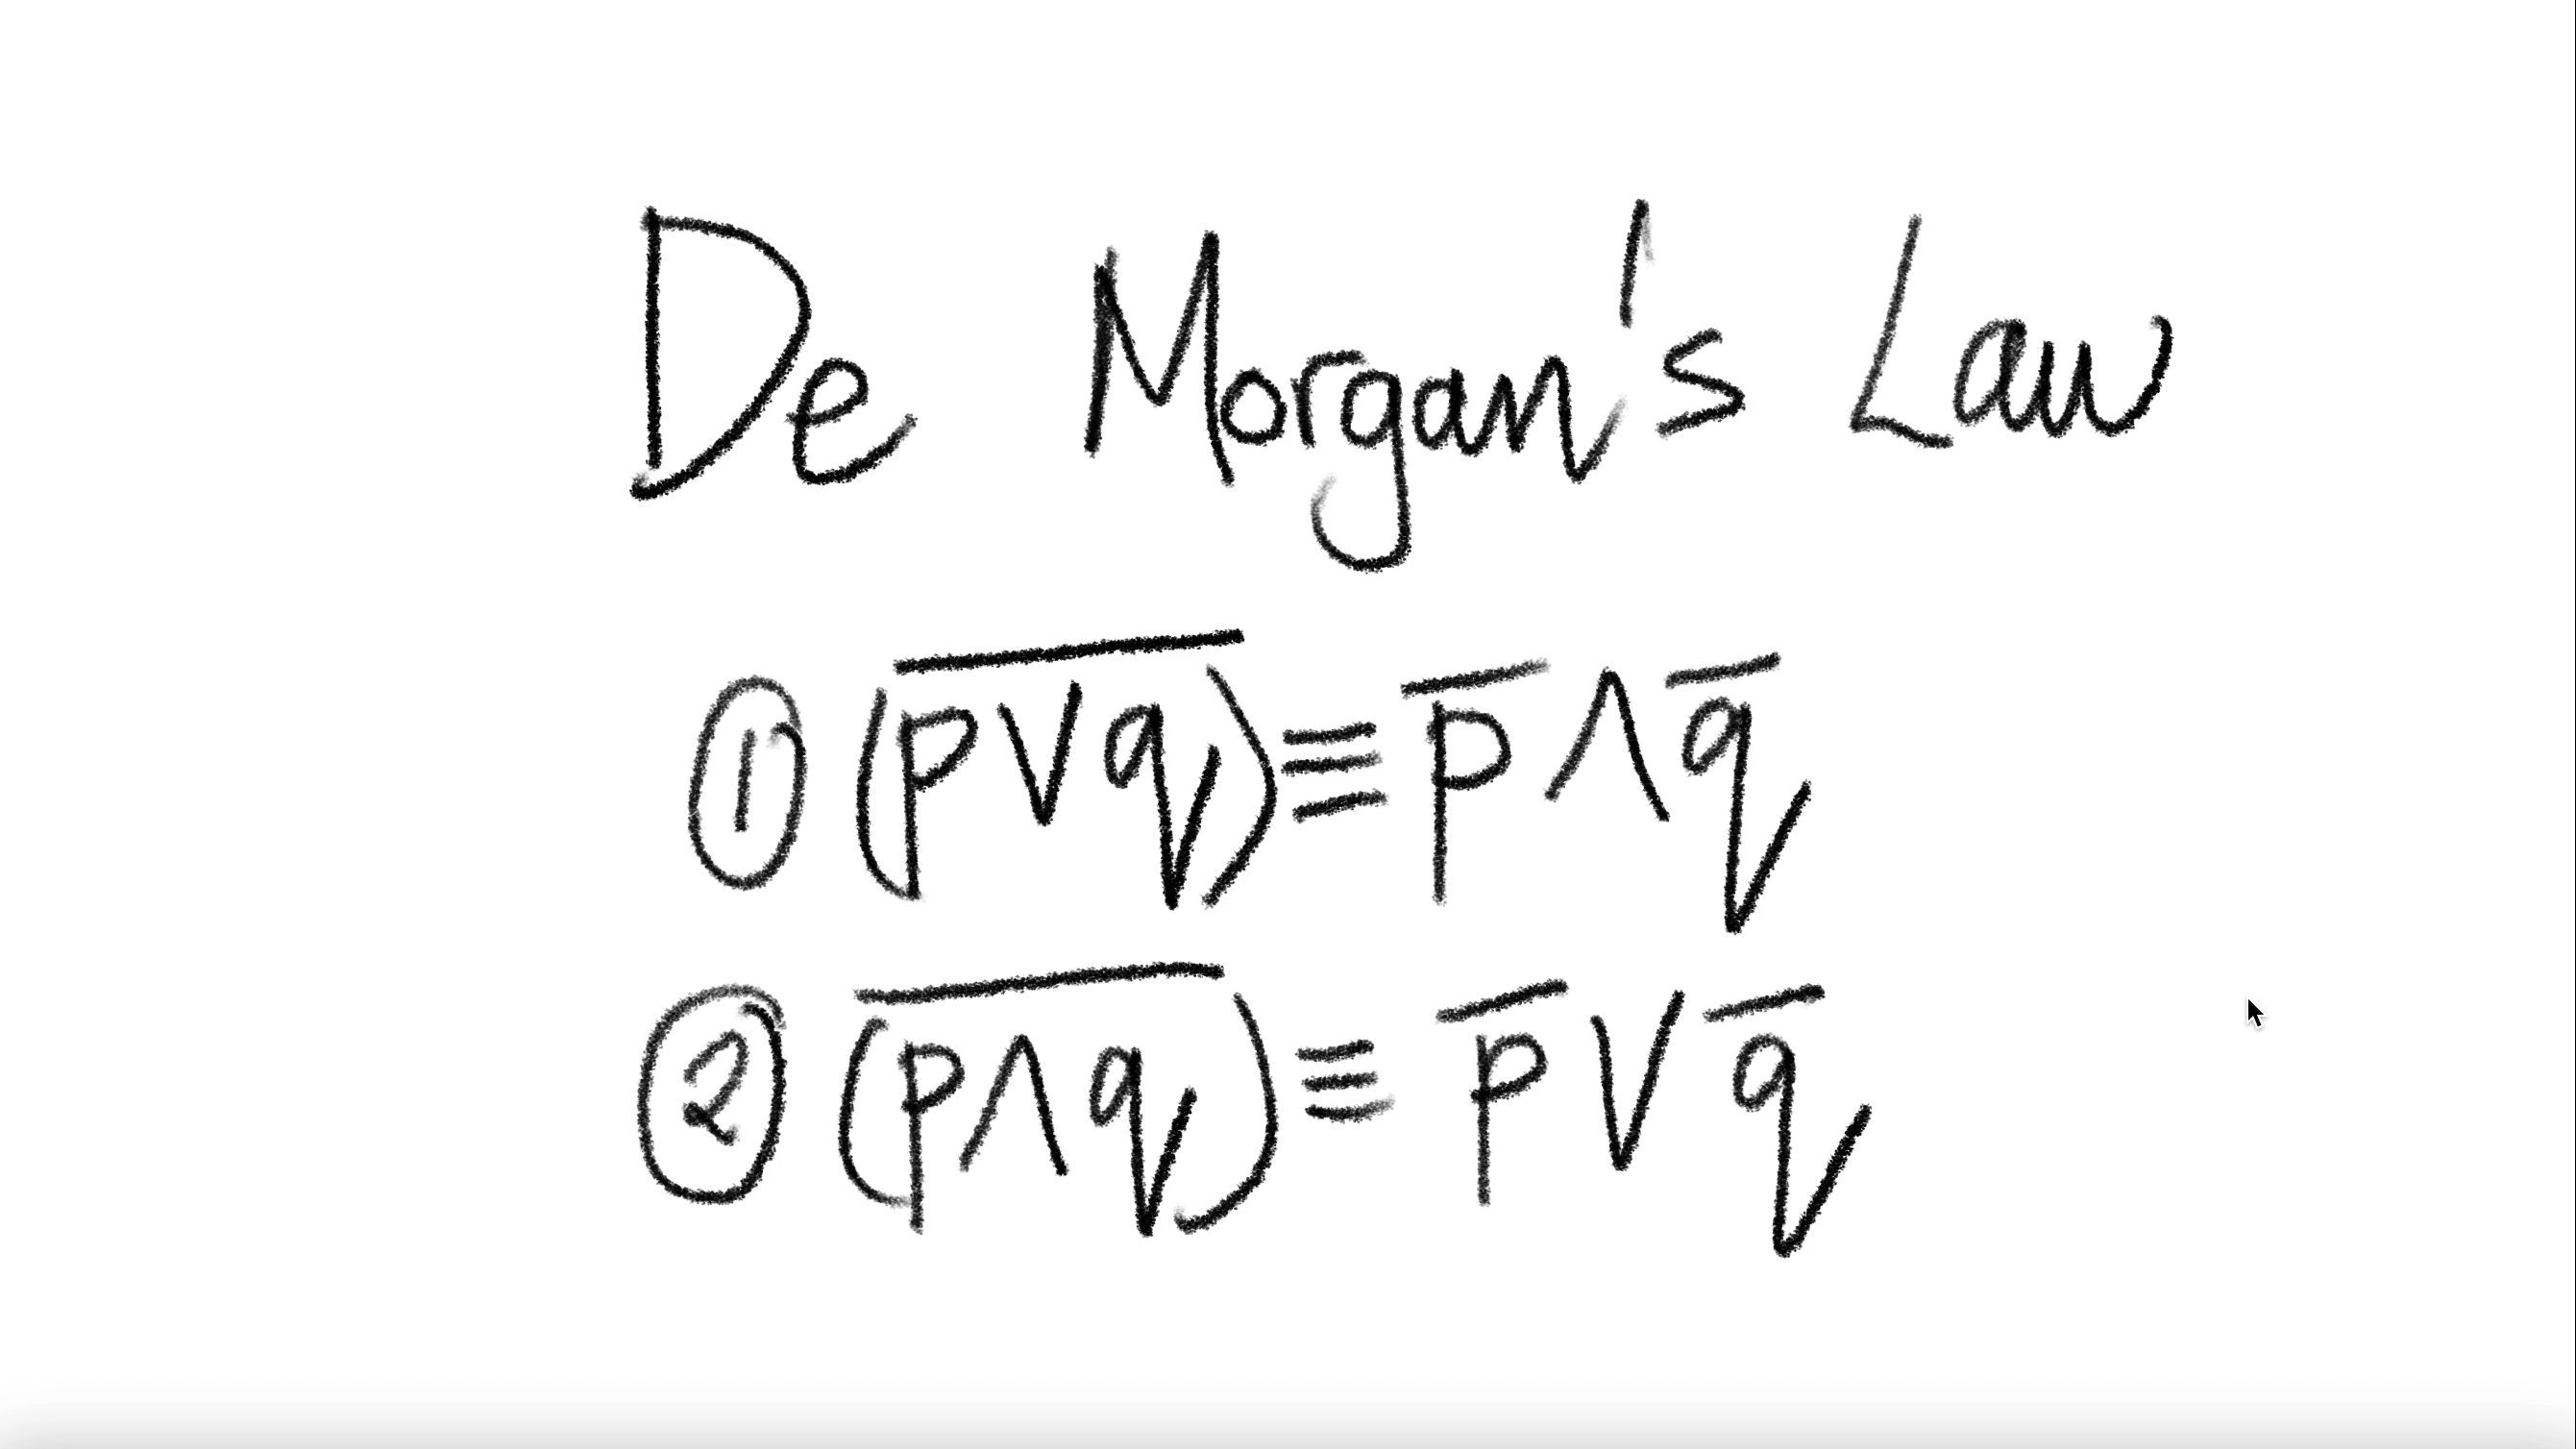 De Morgan's Law
① (p∨q)̅ ≡ p̅ ∧ q̅
② (p∧q)̅ ≡ p̅ ∨ q̅